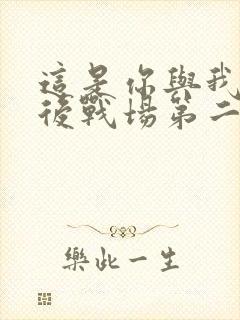 這是你與我
後戰場第二
樂此一生